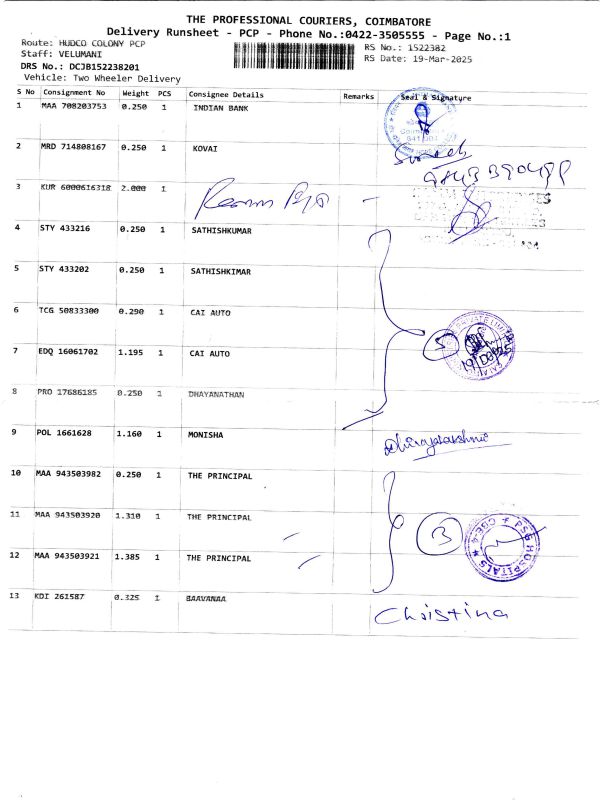 THE PROFESSIONAL COURIERS, COIMBATORE
Delivery Runsheet - PCP - Phone No.:0422-3505555 - Page No.:1
Route: HUDCO COLONY PCP
RS No.: 1522382
Staff: VELUMANI
RS Date: 19-Mar-2025
DRS No.: DCJB152238201
Vehicle: Two Wheeler Delivery
S No Consignment No Weight PCS Consignee Details Remarks Seal & Signature
1 MAA 708203753 0.250 1 INDIAN BANK
2 MRD 714808167 0.250 1 KOVAI
3 KUR 6000616318 2.000 1
4 STY 433216 0.250 1 SATHISHKUMAR
5 STY 433202 0.250 1 SATHISHKIMAR
6 TCG 50833300 0.290 1 CAI AUTO
7 EDQ 16061702 1.195 1 CAI AUTO
5
8 PRO 17686185 0.250 1 DHAYANATHAN
9 POL 1661628 1.160 1 MONISHA
10 MAA 943503982 0.250 1 THE PRINCIPAL
11 MAA 943503920 1.310 1 THE PRINCIPAL
3
PSG HOSPITALS
12 MAA 943503921 1.385 1 THE PRINCIPAL
13 KDI 261587 0.325 1 BAAVANAA
Christina